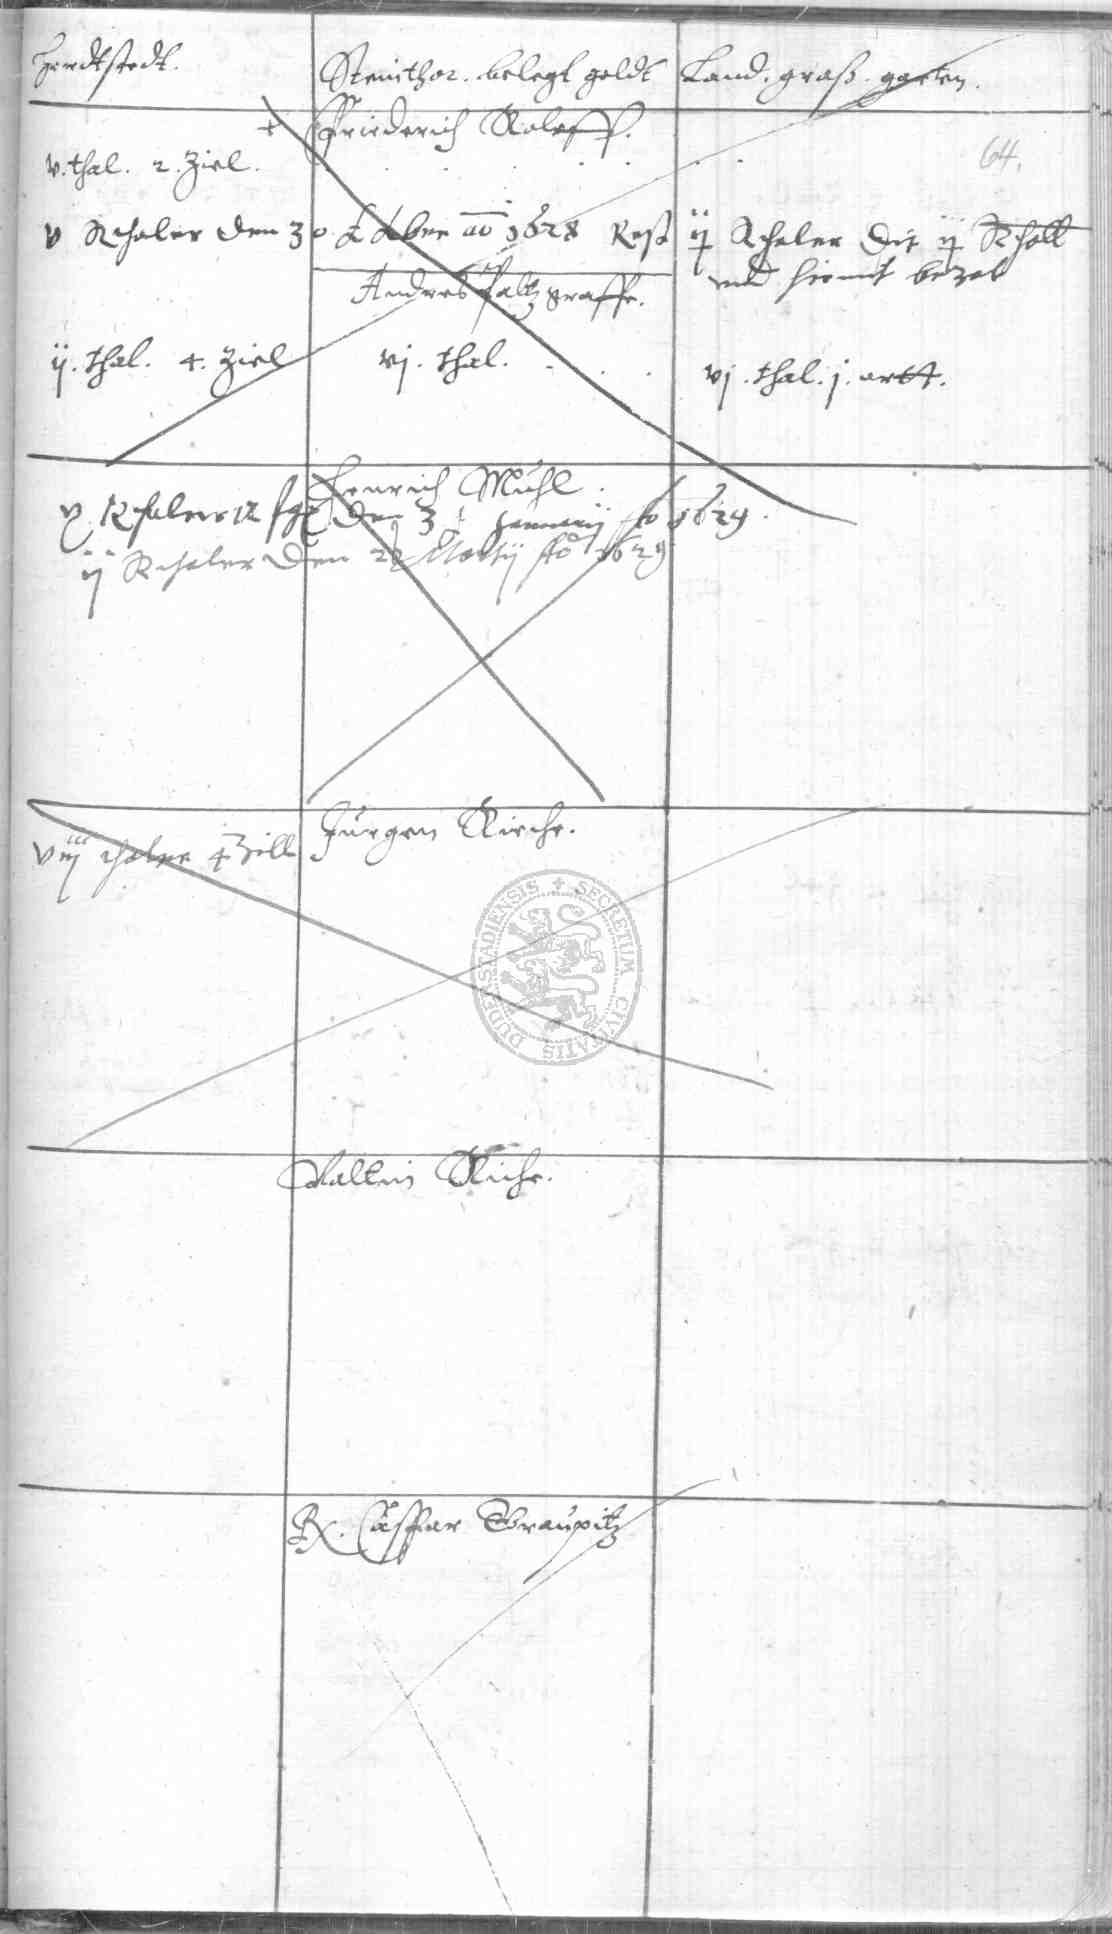 Herdtstedt. Steinthor. belegt geldt Land. graß. garten.
Friederich Roleff.
64.
v. thal. 2. Ziel.
v Rthaler den 30 Xbee ao 1628 Rest ij Rthaler die ij Rthall
vnd hiemit bezal
Andres Paltzgraffe.
ij. thal. 4. Ziel vj. thal. vj. thal. j. ortt.
Henrich Mühl.
v Rthaler 12 den 31 Januarij Ao 1629.
ij Rthaler den 28 Martij Ao 1629
Jürgen Kirche.
viij thaler 4 Zill
DUDERSTADIENSIS + SECRETUM CIVITATIS
Valtin Riche.
Caspar Graupitz